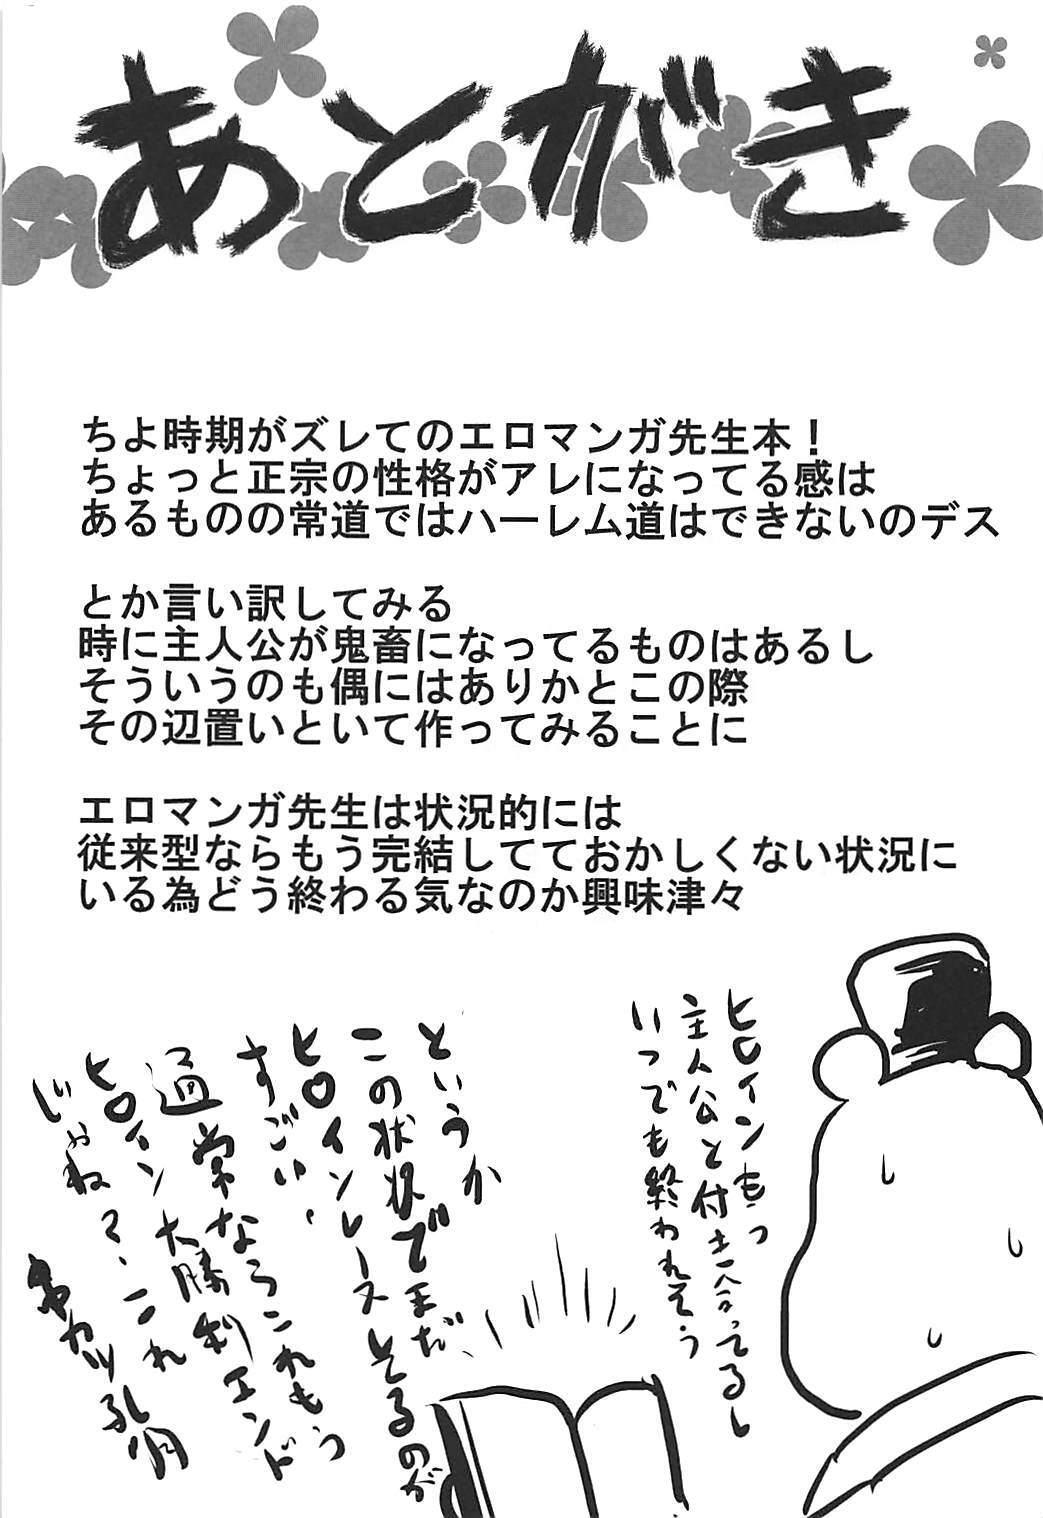 あとがき
ちよ時期がズレてのエロマンガ先生本！
ちょっと正宗の性格がアレになってる感は
あるものの常道ではハーレム道はできないのデス
とか言い訳してみる
時に主人公が鬼畜になってるものはあるし
そういうのも偶にはありかとこの際
その辺置いといて作ってみることに
エロマンガ先生は状況的には
従来型ならもう完結してておかしくない状況に
いる為どう終わる気なのか興味津々
ヒロインもっ
主人公と付き合ってるし
いつでも終われそう
というか
この状状でまだ
ヒロインレースしてるのが
すごい、
通常ならこれもう
ヒロイン大勝利エンド
じゃね？、これ